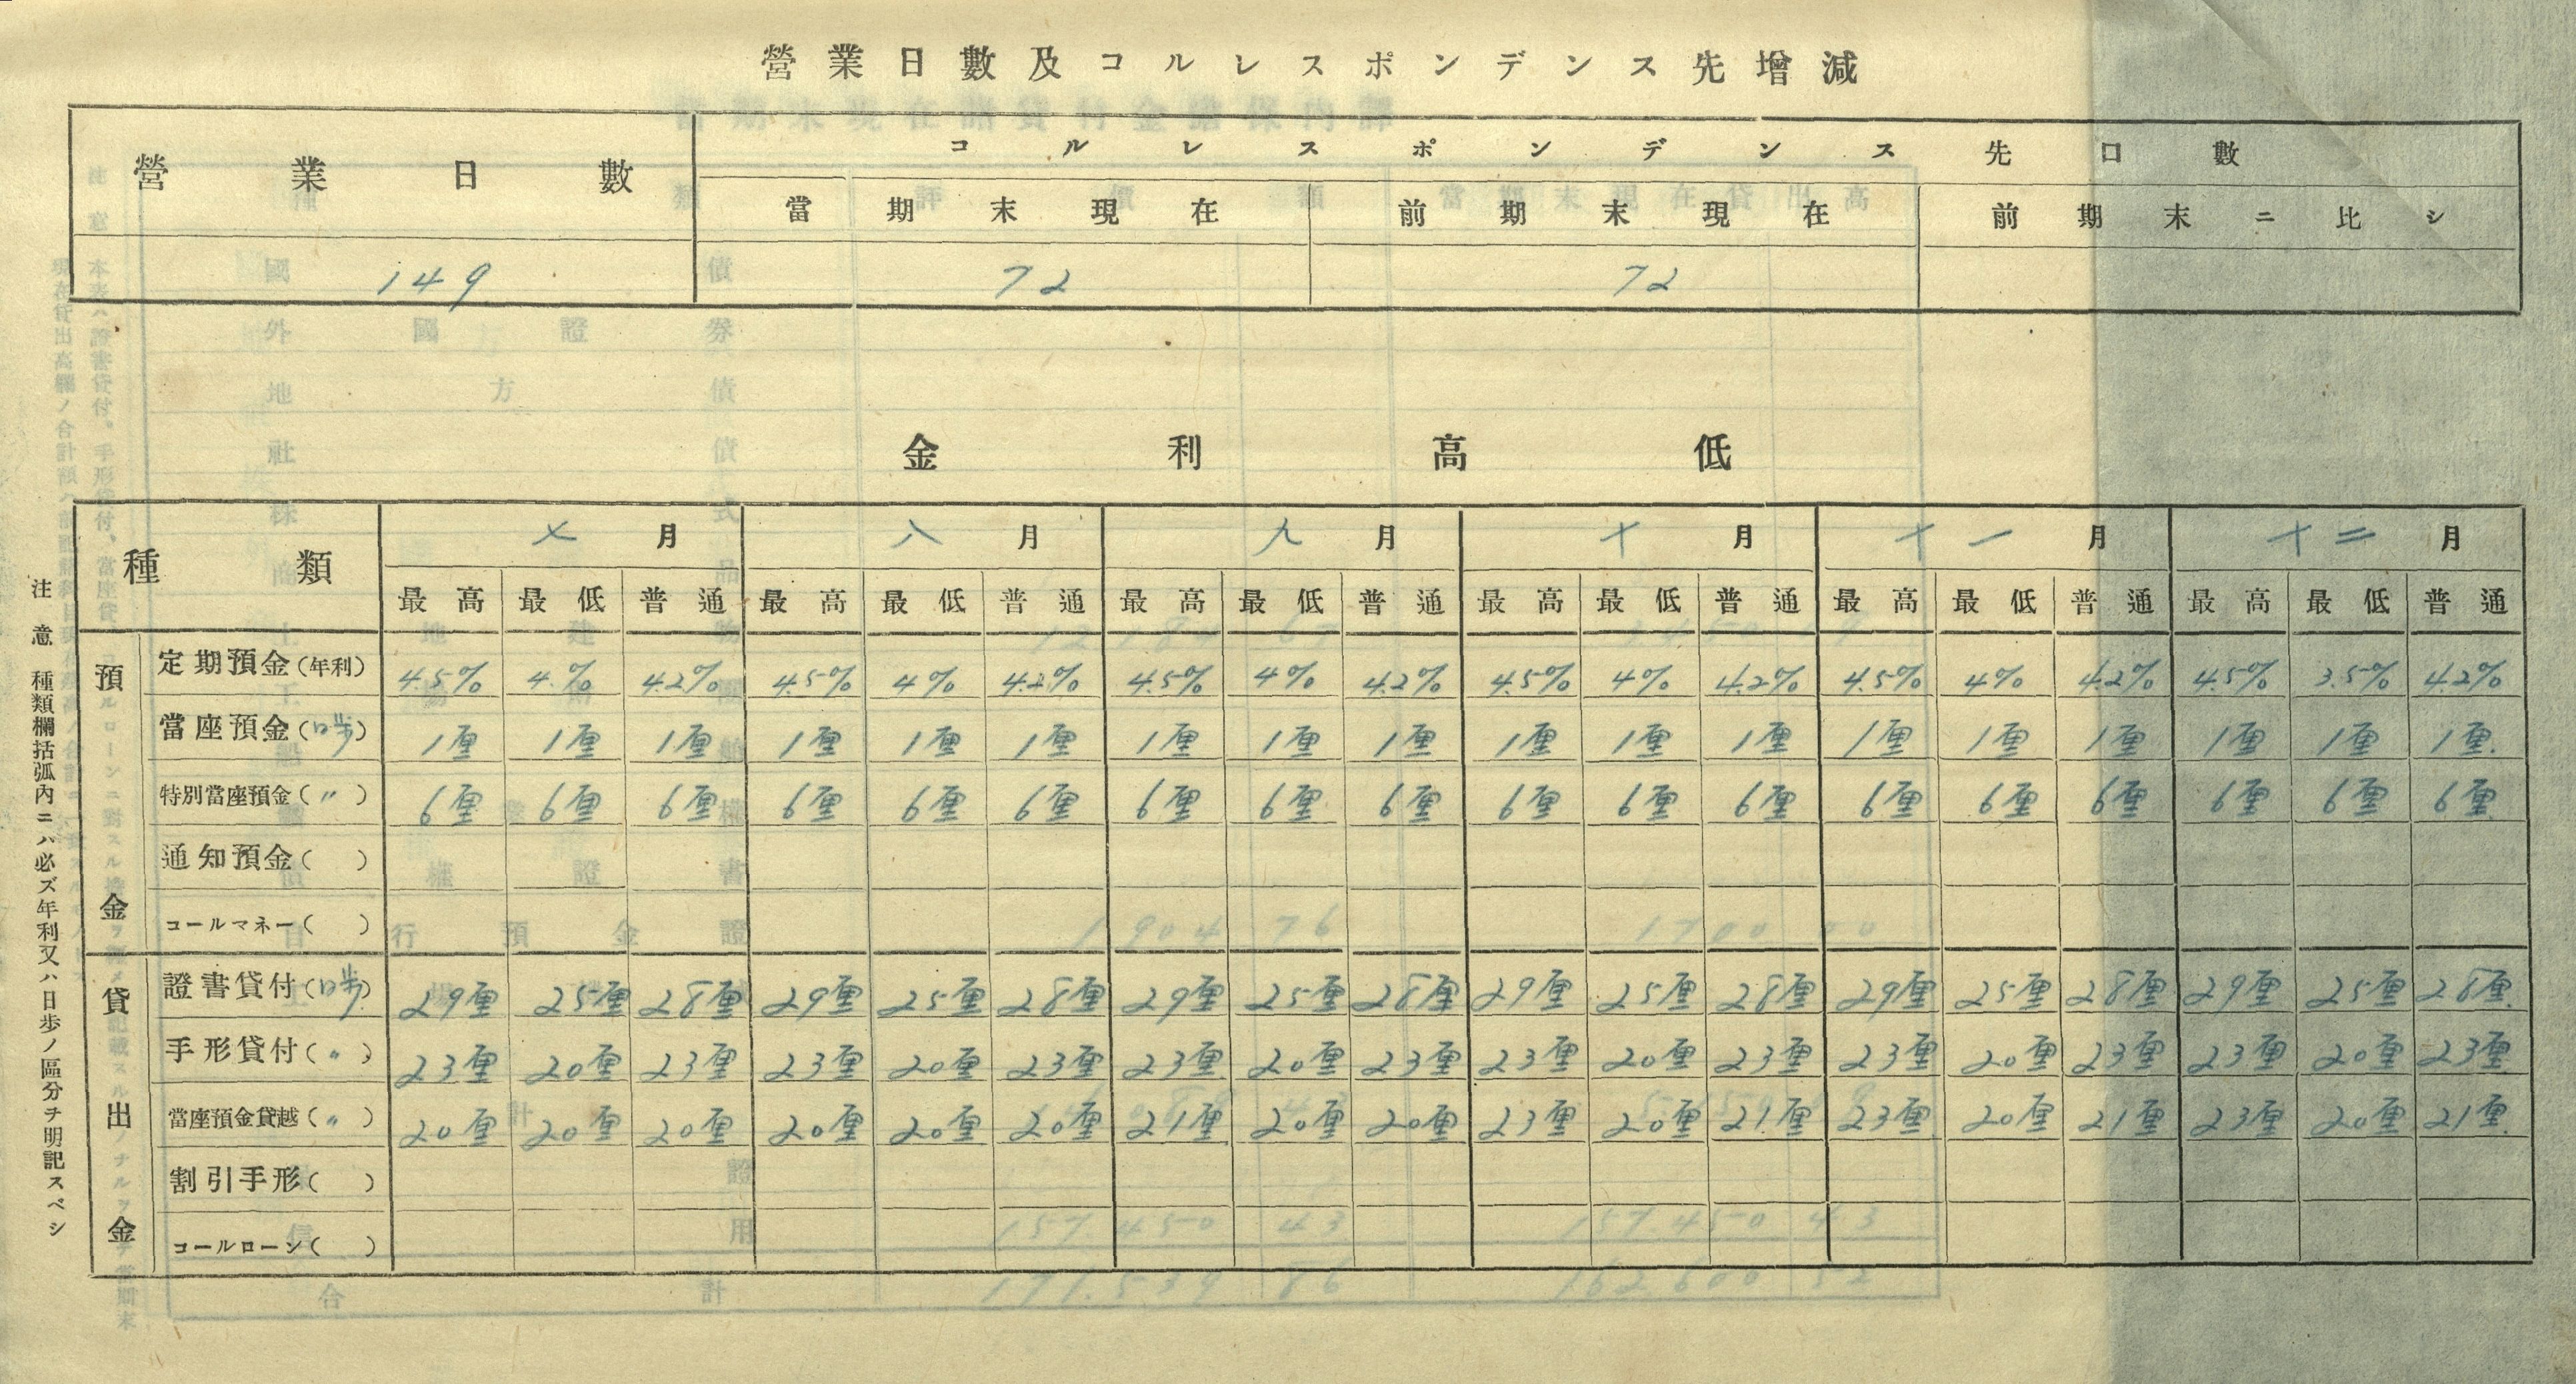 營業日數及コルレスポンデンス先增減
營業日數 コルレスポンデンス先口數
當期末現在 前期末現在 前期末ニ比シ
149 72 72
金利高低
種類 七月 八月 九月 十月 十一月 十二月
最高 最低 普通 最高 最低 普通 最高 最低 普通 最高 最低 普通 最高 最低 普通 最高 最低 普通
預金
定期預金(年利) 4.5% 4.% 4.2% 4.5% 4% 4.2% 4.5% 4% 4.2% 4.5% 4% 4.2% 4.5% 4% 4.2% 4.5% 3.5% 4.2%
當座預金(日步) 1厘 1厘 1厘 1厘 1厘 1厘 1厘 1厘 1厘 1厘 1厘 1厘 1厘 1厘 1厘 1厘 1厘 1厘
特別當座預金(〃) 6厘 6厘 6厘 6厘 6厘 6厘 6厘 6厘 6厘 6厘 6厘 6厘 6厘 6厘 6厘 6厘 6厘 6厘
通知預金( )
コールマネー( )
貸出金
證書貸付(日步) 29厘 25厘 28厘 29厘 25厘 28厘 29厘 25厘 28厘 29厘 25厘 28厘 29厘 25厘 28厘 29厘 25厘 28厘
手形貸付(〃) 23厘 20厘 23厘 23厘 20厘 23厘 23厘 20厘 23厘 23厘 20厘 23厘 23厘 20厘 23厘 23厘 20厘 23厘
當座預金貸越(〃) 20厘 20厘 20厘 20厘 20厘 20厘 21厘 20厘 20厘 23厘 20厘 21厘 23厘 20厘 21厘 23厘 20厘 21厘
割引手形( )
コールローン( )
注意 種類欄括弧內ニハ必ズ年利又ハ日步ノ區分ヲ明記スベシ